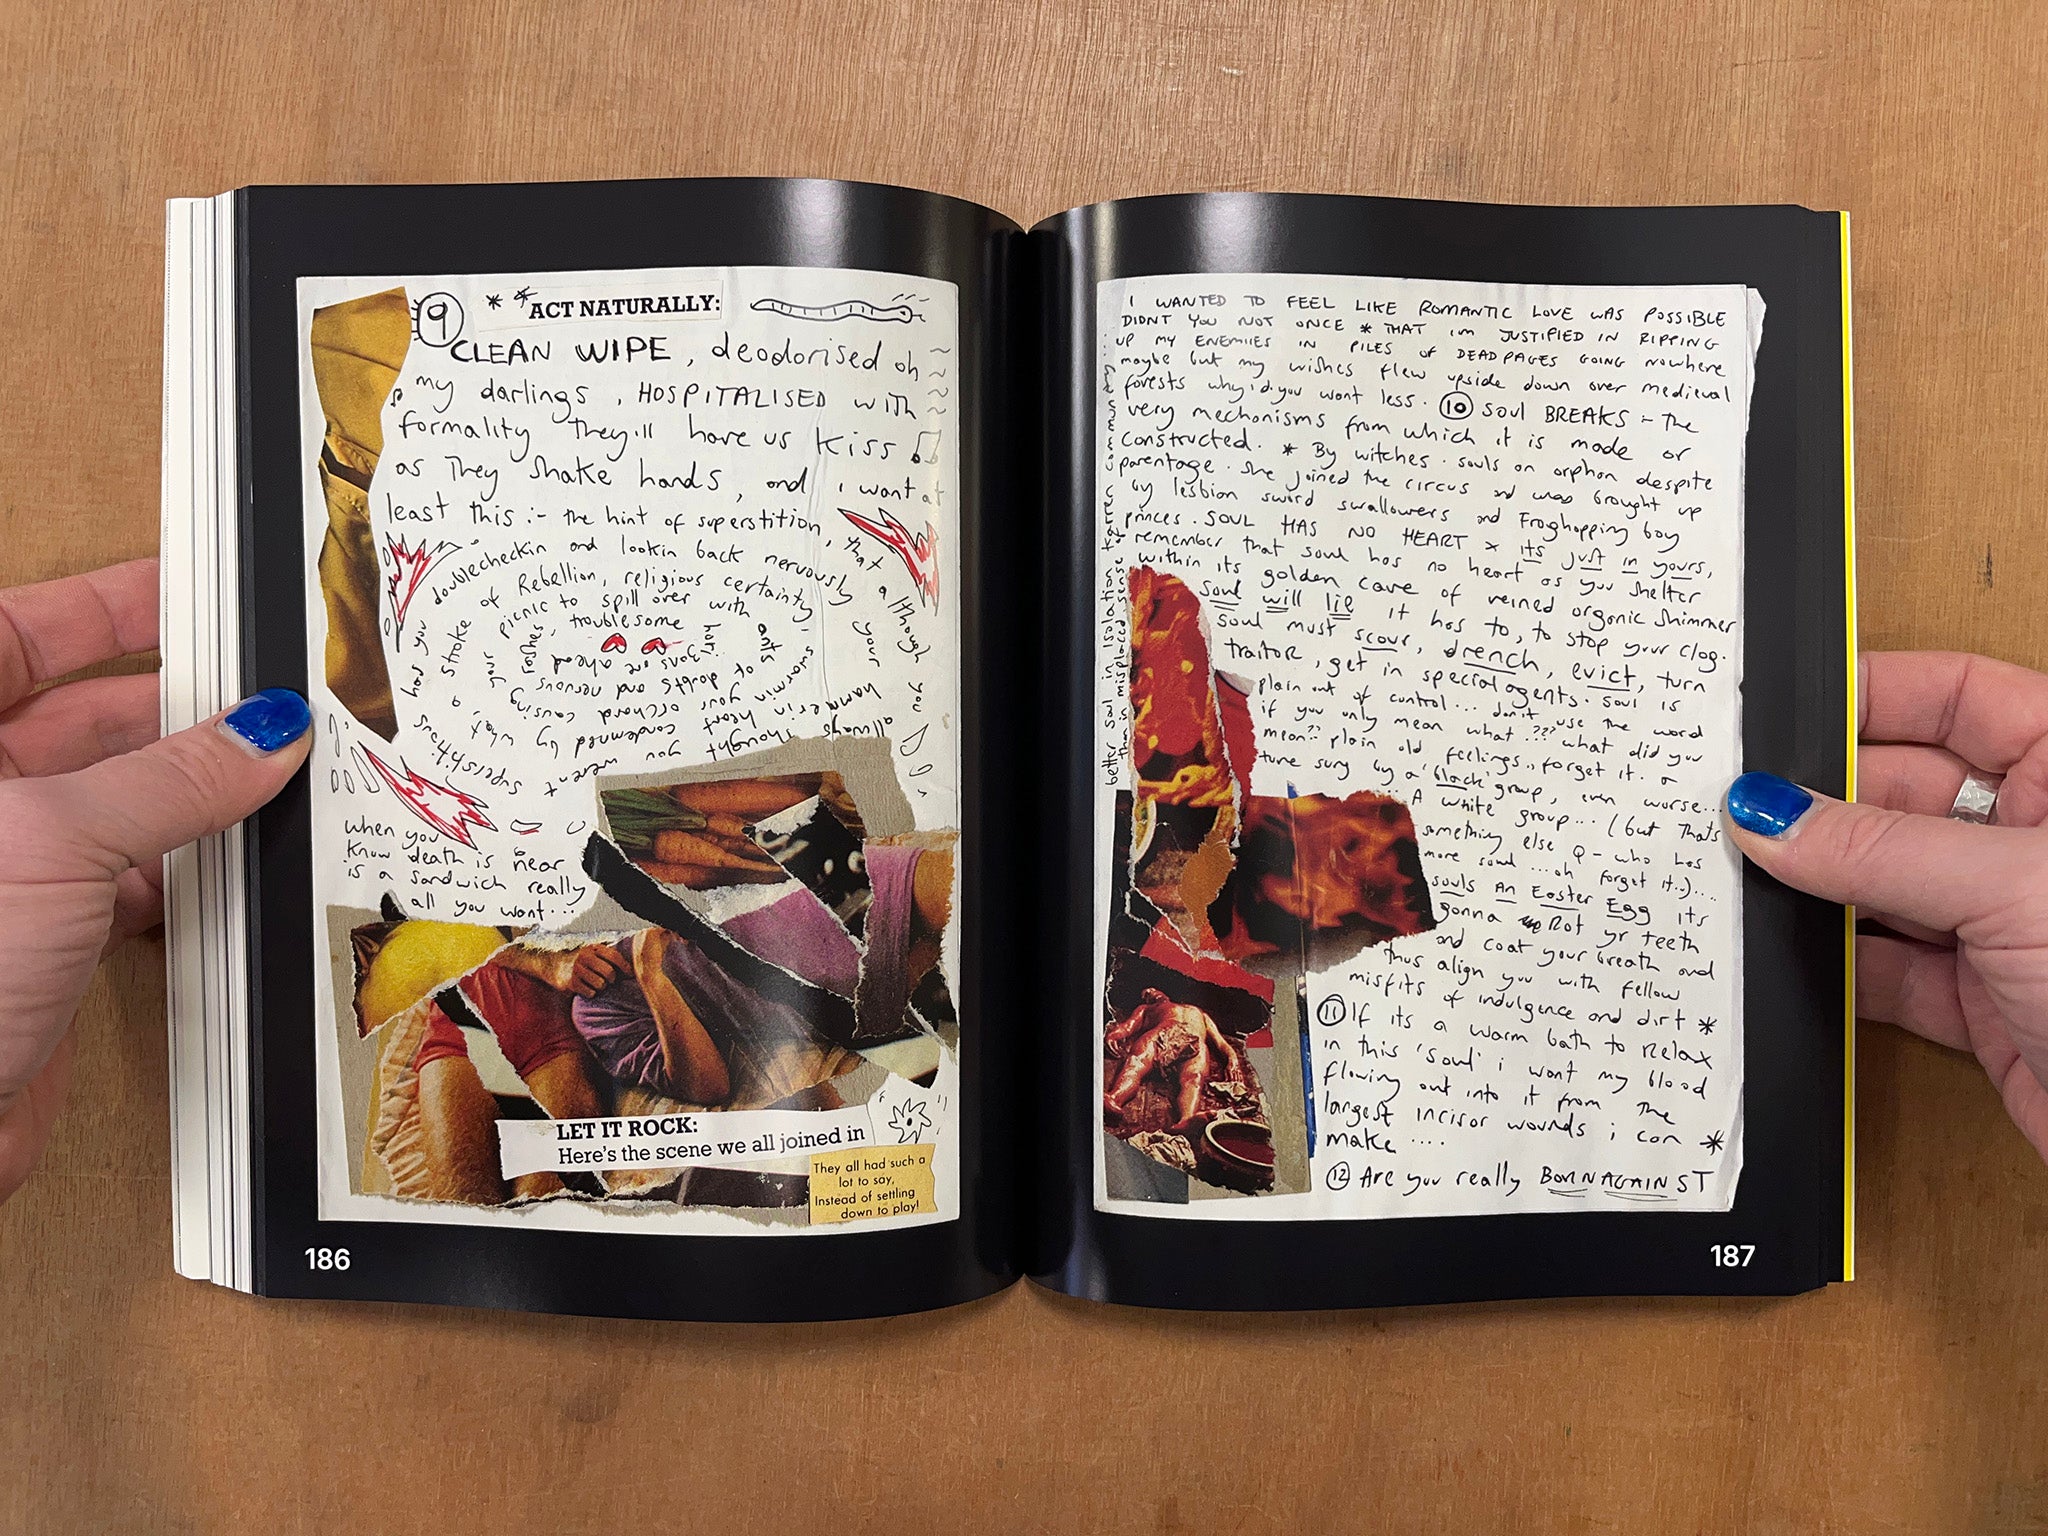 9
* * ACT NATURALLY:
CLEAN WIPE, deodorised oh
my darlings, HOSPITALISED with
formality they'll have us kiss
as they shake hands, and i want at
least this :- the hint of superstition,
doublecheckin and lookin back nervously
that although you
allways
has you superstitious
a stroke of Rebellion, religious certainty,
picnic to spill over with
ants swarmin
your hammerin heart
thought you werent
what condemned by
your doubts and nervous
orchard causing
troublesome
horizons are ahead
when you
know death is near
is a sandwich really
all you want...
LET IT ROCK:
Here's the scene we all joined in
They all had such a
lot to say,
Instead of settling
down to play!
186
I WANTED TO FEEL LIKE ROMANTIC LOVE WAS POSSIBLE
DIDNT YOU NOT ONCE * THAT IM JUSTIFIED IN RIPPING
UP MY ENEMIIES IN PILES OF DEADPAGES GOING NOWHERE
maybe but my wishes flew upside down over medieval
forests why'd you want less. 10 soul BREAKS :- The
very mechonisms from which it is made or
constructed. * By witches. souls an orphan despite
parentage. she joined the circus and was brought up
by lesbian sword swallowers and Froghopping boy
princes. SOUL HAS NO HEART x its just in yours,
remember that soul has no heart as you shelter
within its golden cave of veined organic shimmer
soul will lie it has to, to stop your clog.
soul must scour, drench, evict, turn
traitor, get in special agents. soul is
plain out of control... don't use the word
if you only mean what.??? what did you
mean?? plain old feelings., forget it. a
tune sung by a 'black' group, even worse...
... A white group... (but thats
something else Q - who has
more soul ...oh forget it..)....
souls An Easter Egg its
gonna Rot yr teeth
and coat your breath and
thus align you with fellow
misfits of indulgence and dirt *
11 If its a warm bath to relax
in this 'soul' i want my blood
flowing out into it from the
largest incisor wounds i can *
make....
12 Are you really BORNAGAINST
better soul in isolation
than in misplaced sense of
community....
187